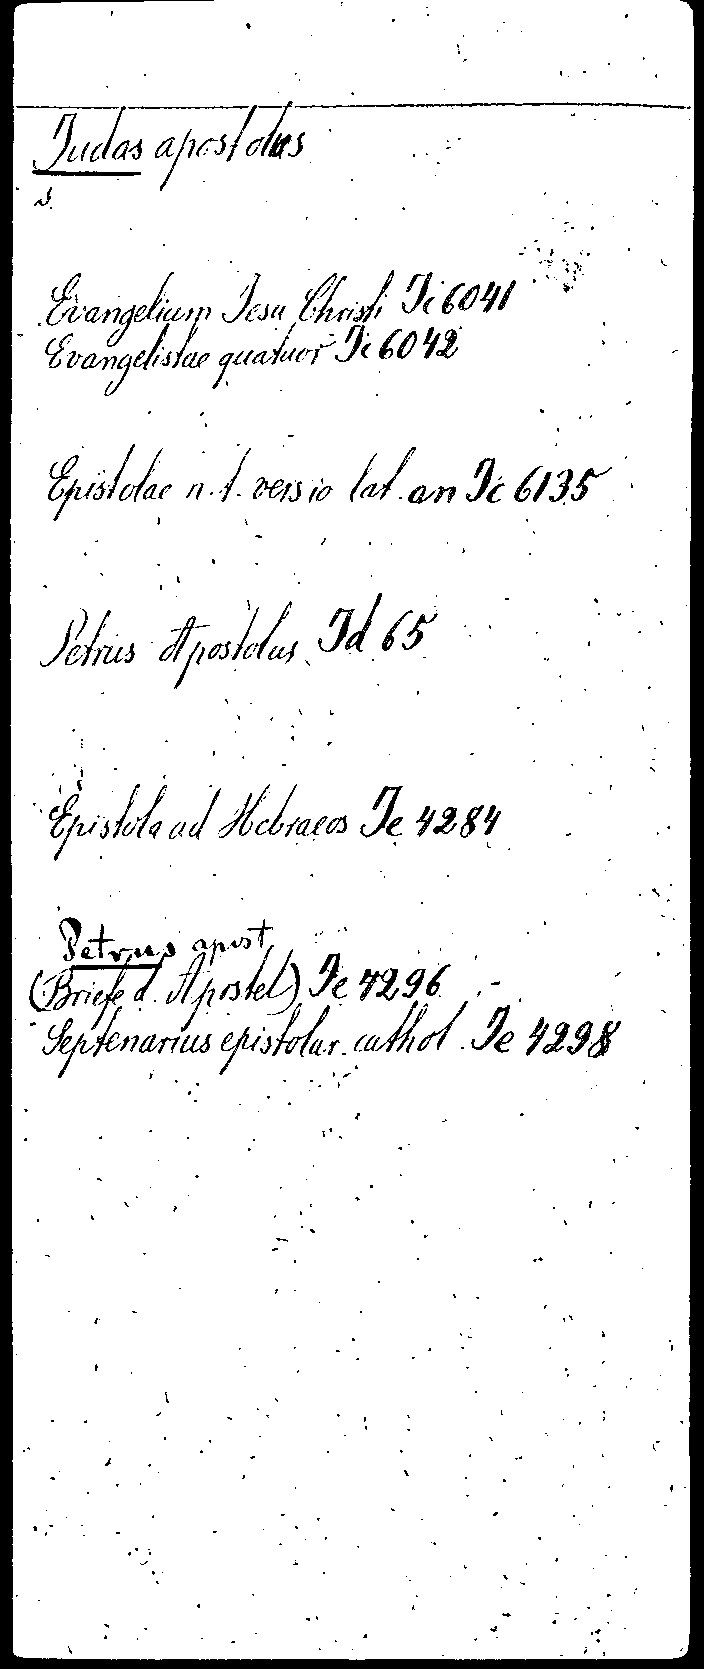 Judas apostolus
s.
Evangelium Jesu Christi Ic 6041
Evangelistae quatuor Ic 6042
Epistolae n. t. versio lat. an Ic 6135
Petrus Apostolus Id 65
Epistola ad Hebraeos Ie 4284
Petrus apost
(Briefe d. Apostel) Ie 4296
Septenarius epistolar. cathol. Ie 4298